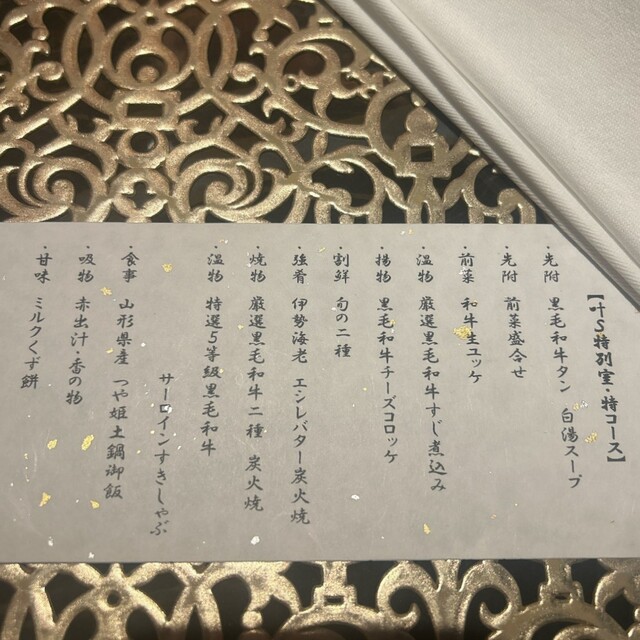 【叶S特別室・特コース】
・先附 黒毛和牛タン 白湯スープ
・先附 前菜盛合せ
・前菜 和牛生ユッケ
・温物 厳選黒毛和牛すじ煮込み
・揚物 黒毛和牛チーズコロッケ
・割鮮 旬の二種
・強肴 伊勢海老 エシレバター炭火焼
・焼物 厳選黒毛和牛二種 炭火焼
・温物 特選5等級黒毛和牛
サーロインすきしゃぶ
・食事 山形県産 つや姫土鍋御飯
・吸物 赤出汁・香の物
・甘味 ミルクくず餅